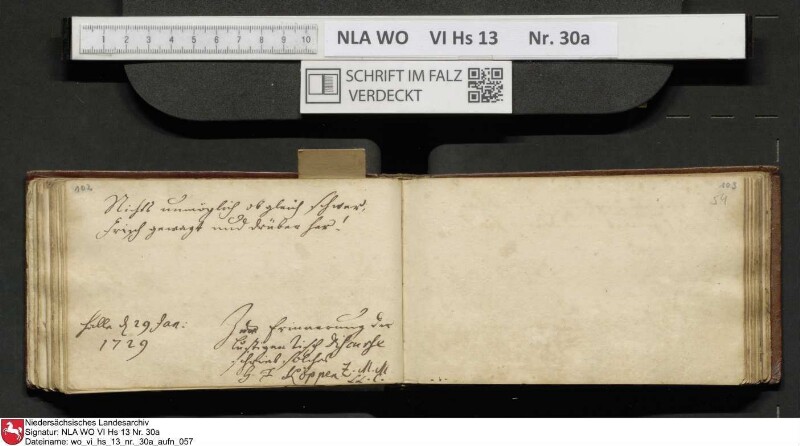 0 1 2 3 4 5 6 7 8 9 10
NLA WO VI Hs 13 Nr. 30a
SCHRIFT IM FALZ
VERDECKT
102
Nichts unmöglich ob gleich schwer,
frisch gewagt und drüber her!
Halle d 29 Jan:
1729
Zur Erinnerung der
lustigen Tisch Discourse
schrieb solches
Köppen
103
54
Niedersächsisches Landesarchiv
Signatur: NLA WO VI Hs 13 Nr. 30a
Dateiname: wo_vi_hs_13_nr._30a_aufn_057